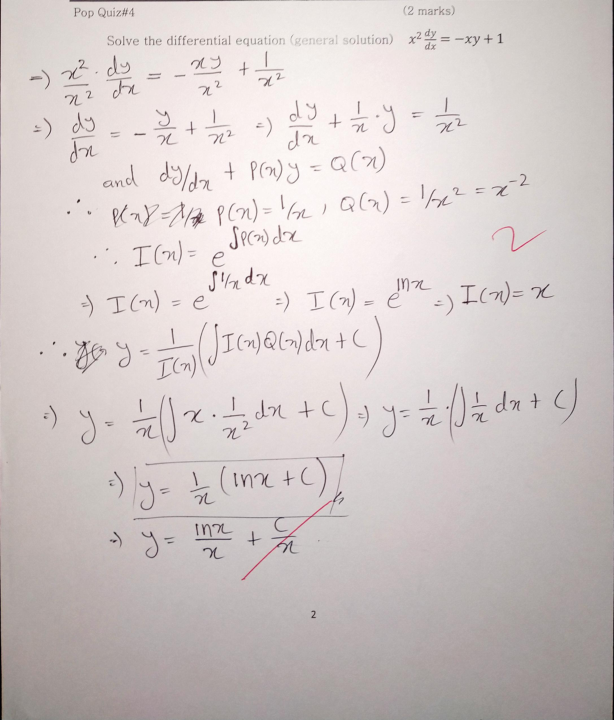 Pop Quiz#4 (2 marks)
Solve the differential equation (general solution) x² dy/dx = −xy + 1
=) x²/x² · dy/dx = − xy/x² + 1/x²
=) dy/dx = − y/x + 1/x² =) dy/dx + 1/x · y = 1/x²
and dy/dx + P(x)y = Q(x)
∴ P(x) = 1/x , Q(x) = 1/x² = x⁻²
2
∴ I(x) = e^∫P(x)dx
=) I(x) = e^∫1/x dx =) I(x) = e^lnx =) I(x) = x
∴ y = 1/I(x) (∫I(x)Q(x)dx + C)
=) y = 1/x (∫x · 1/x² dx + C) =) y = 1/x · (∫1/x dx + C)
=) y = 1/x (lnx + C)
=) y = lnx/x + C/x
2